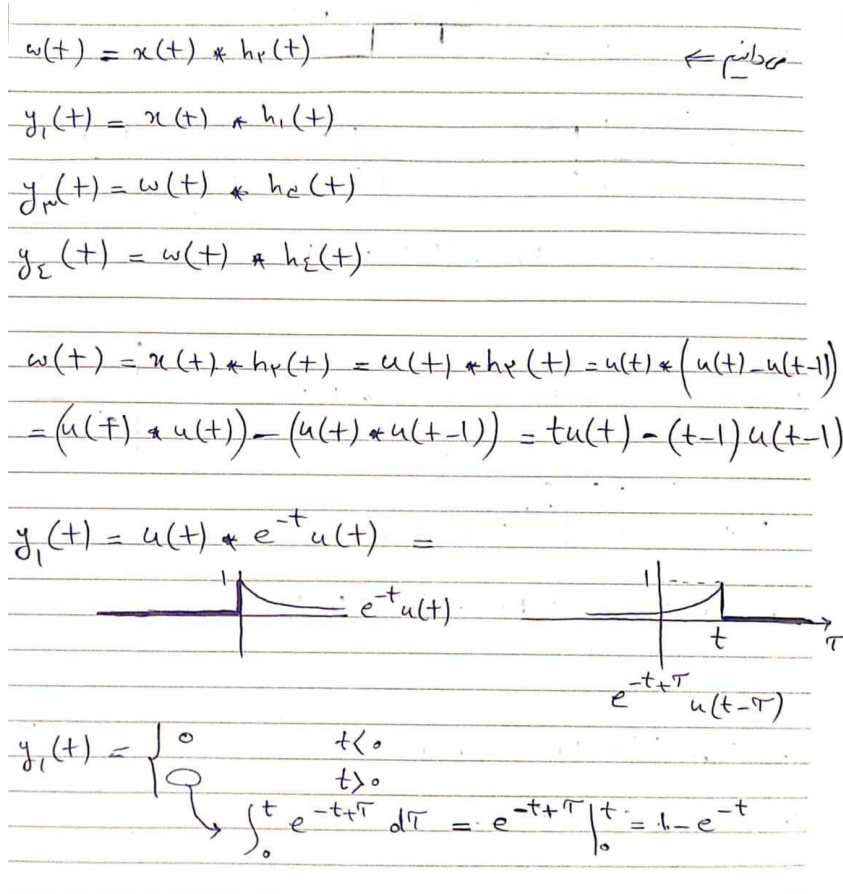 w(t) = x(t) * h۲(t) می‌دانیم ⇐
y₁(t) = x(t) * h₁(t)
y۳(t) = w(t) * h۳(t)
y٤(t) = w(t) * h٤(t)
w(t) = x(t) * h۲(t) = u(t) * h۲(t) = u(t) * (u(t) - u(t-1))
= (u(t) * u(t)) - (u(t) * u(t-1)) = tu(t) - (t-1)u(t-1)
y₁(t) = u(t) * e^{-t} u(t) =
1 e^{-t}u(t) 1 t τ
e^{-t+τ} u(t-τ)
y₁(t) = { ۰ t<۰
t>۰
∫₀^t e^{-t+τ} dτ = e^{-t+τ} |₀^t = 1-e^{-t}